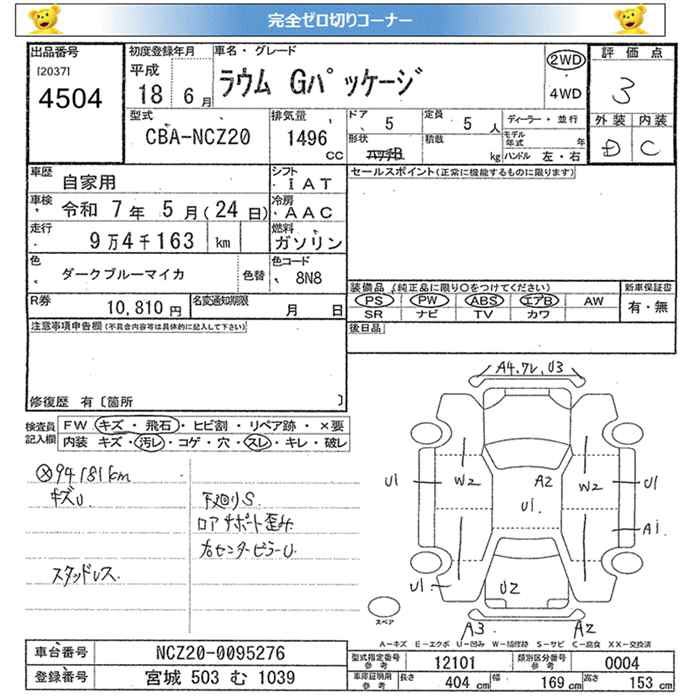 完全ゼロ切りコーナー
出品番号
[2037]
4504
初度登録年月
平成
18 6 月
車名・グレード
ラウム Gパッケージ
2WD
・
4WD
評価点
3
外装 内装
D C
型式
CBA-NCZ20
排気量
1496
CC
ドア 5
形状
定員 5 人
積載 kg
ディーラー・並行
モデル年式 年
ハンドル 左・右
車歴 自家用
車検 令和 7 年 5 月(24 日)
走行 9 万 4 千 163 km
色 ダークブルーマイカ 色替
シフト ・IAT
冷房 ・AAC
燃料 ガソリン
色コード 8N8
セールスポイント(正常に機能するものに限ります)
R券 10,810 円
名変通知期限 月 日
装備品 (純正品に限り○をつけてください)
PS PW ABS エアB AW
SR ナビ TV カワ
新車保証書
有・無
後日品
注意事項申告欄(不具合内容等は具体的に記入して下さい)
修復歴 有〔箇所 〕
検査員記入欄
FW キズ・飛石・ヒビ割・リペア跡・×要
内装 キズ・汚レ・コゲ・穴・スレ・キレ・破レ
94181km
キズU
スタッドレス
下回りS
ロアサポート歪み
右センターピラーU
A4.ワレ,U3
U1 W2 A2 W2 U1
U1
A1
U1 U2
A3 A2
スペア
A-キズ E-エクボ U-凹み W-補修跡 S-サビ C-腐食 XX-交換済
車台番号 NCZ20-0095276
登録番号 宮城 503 む 1039
型式指定番号 参考 12101
類別区分番号 参考 0004
車庫証明用 参考 長さ 404 cm 幅 169 cm 高さ 153 cm